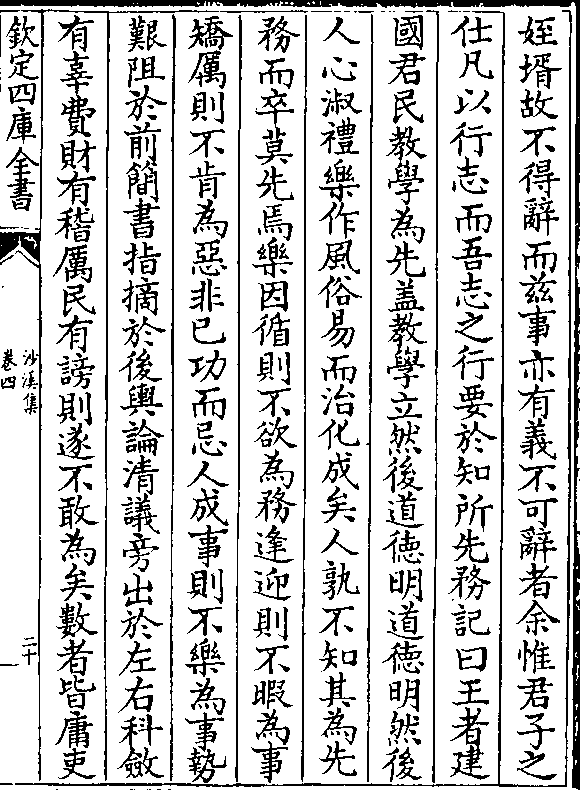 姪壻故不得辭而兹事亦有義不可辭者余惟君子之
仕凡以行志而吾志之行要於知所先務記曰王者建
國君民教學為先盖教學立然後道德明道德明然後
人心淑禮樂作風俗易而治化成矣人孰不知其為先
務而卒莫先焉樂因循則不欲為務逢迎則不暇為事
矯厲則不肯為惡非已功而忌人成事則不樂為事勢
艱阻於前簡書指摘於後輿論清議旁出於左右科斂
有辜費財有稽厲民有謗則遂不敢為矣數者皆庸吏
欽定四庫全書
沙溪集
卷四
二十